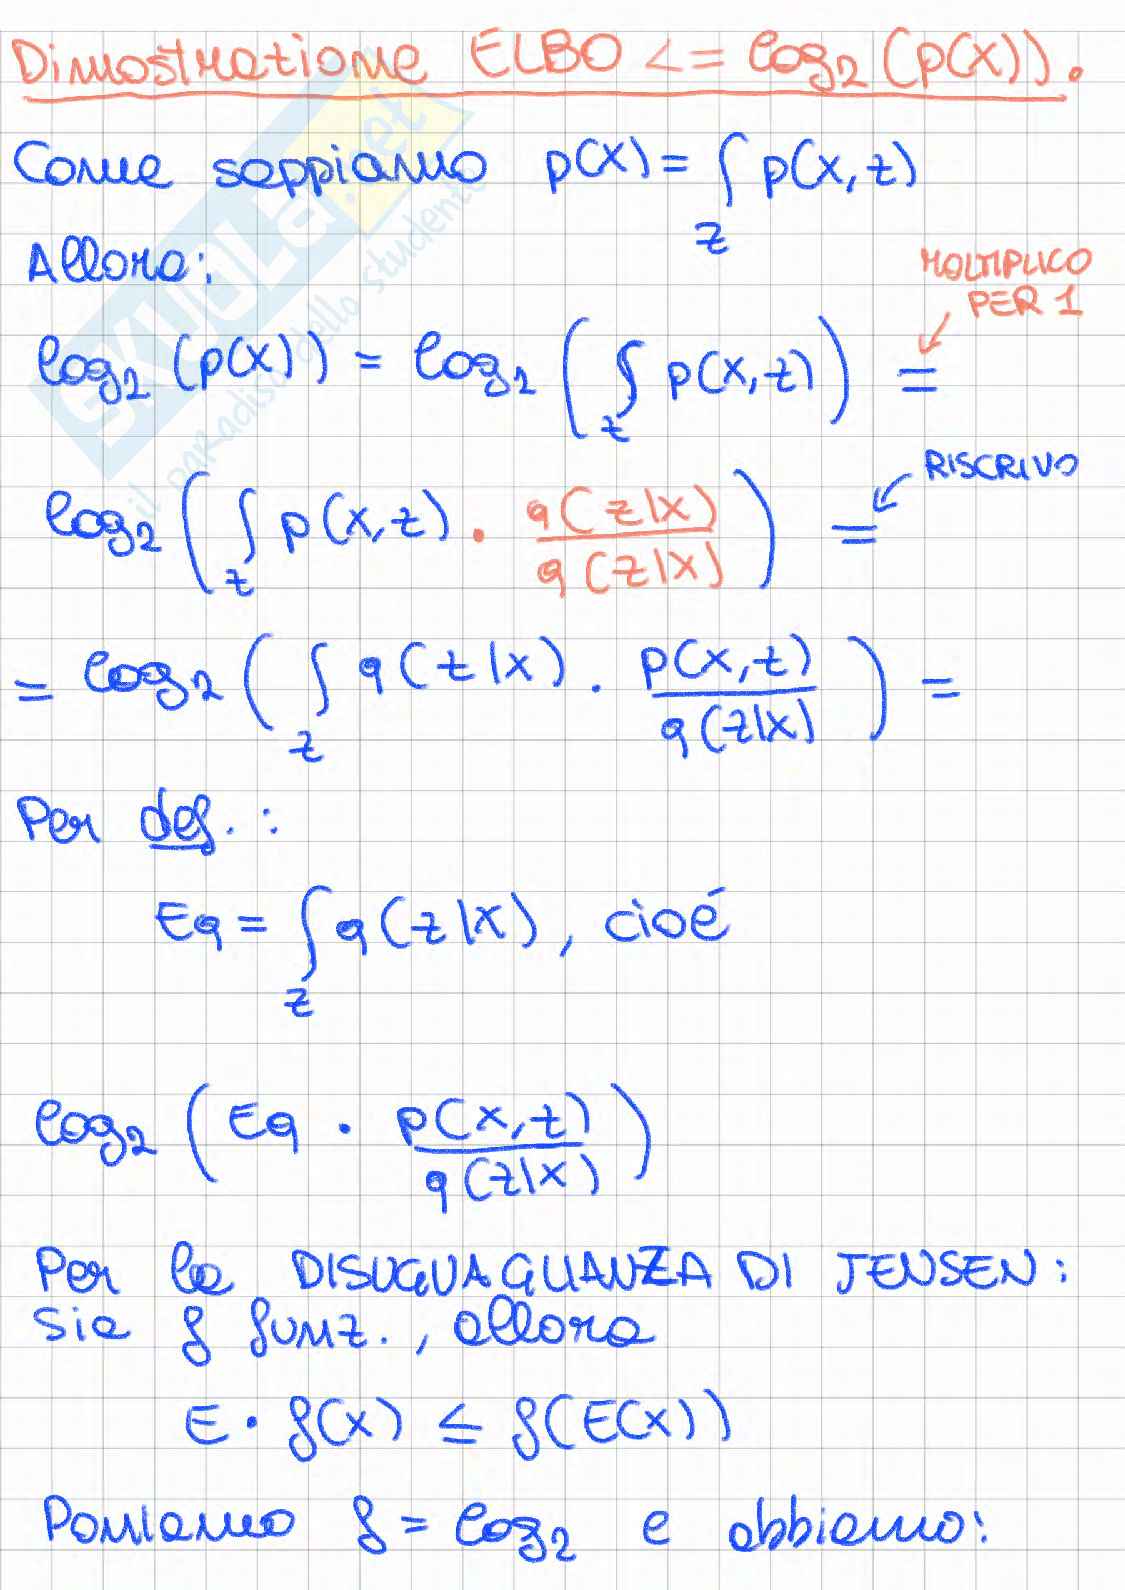 Dimostrazione ELBO <= log₂(p(x)).
Come sappiamo p(x) = ∫_z p(x,z)
Allora:
MOLTIPLICO
PER 1
log₂(p(x)) = log₂(∫_z p(x,z)) =
RISCRIVO
log₂(∫_z p(x,z) · q(z|x)/q(z|x)) =
= log₂(∫_z q(z|x) · p(x,z)/q(z|x)) =
Per def. :
Eq = ∫_z q(z|x), cioé
log₂(Eq · p(x,z)/q(z|x))
Per la DISUGUAGLIANZA DI JENSEN:
Sia f funz., allora
E · f(x) ≤ f(E(x))
Poniamo f = log₂ e abbiamo:
SKUOLA.net
il paradiso dello studente